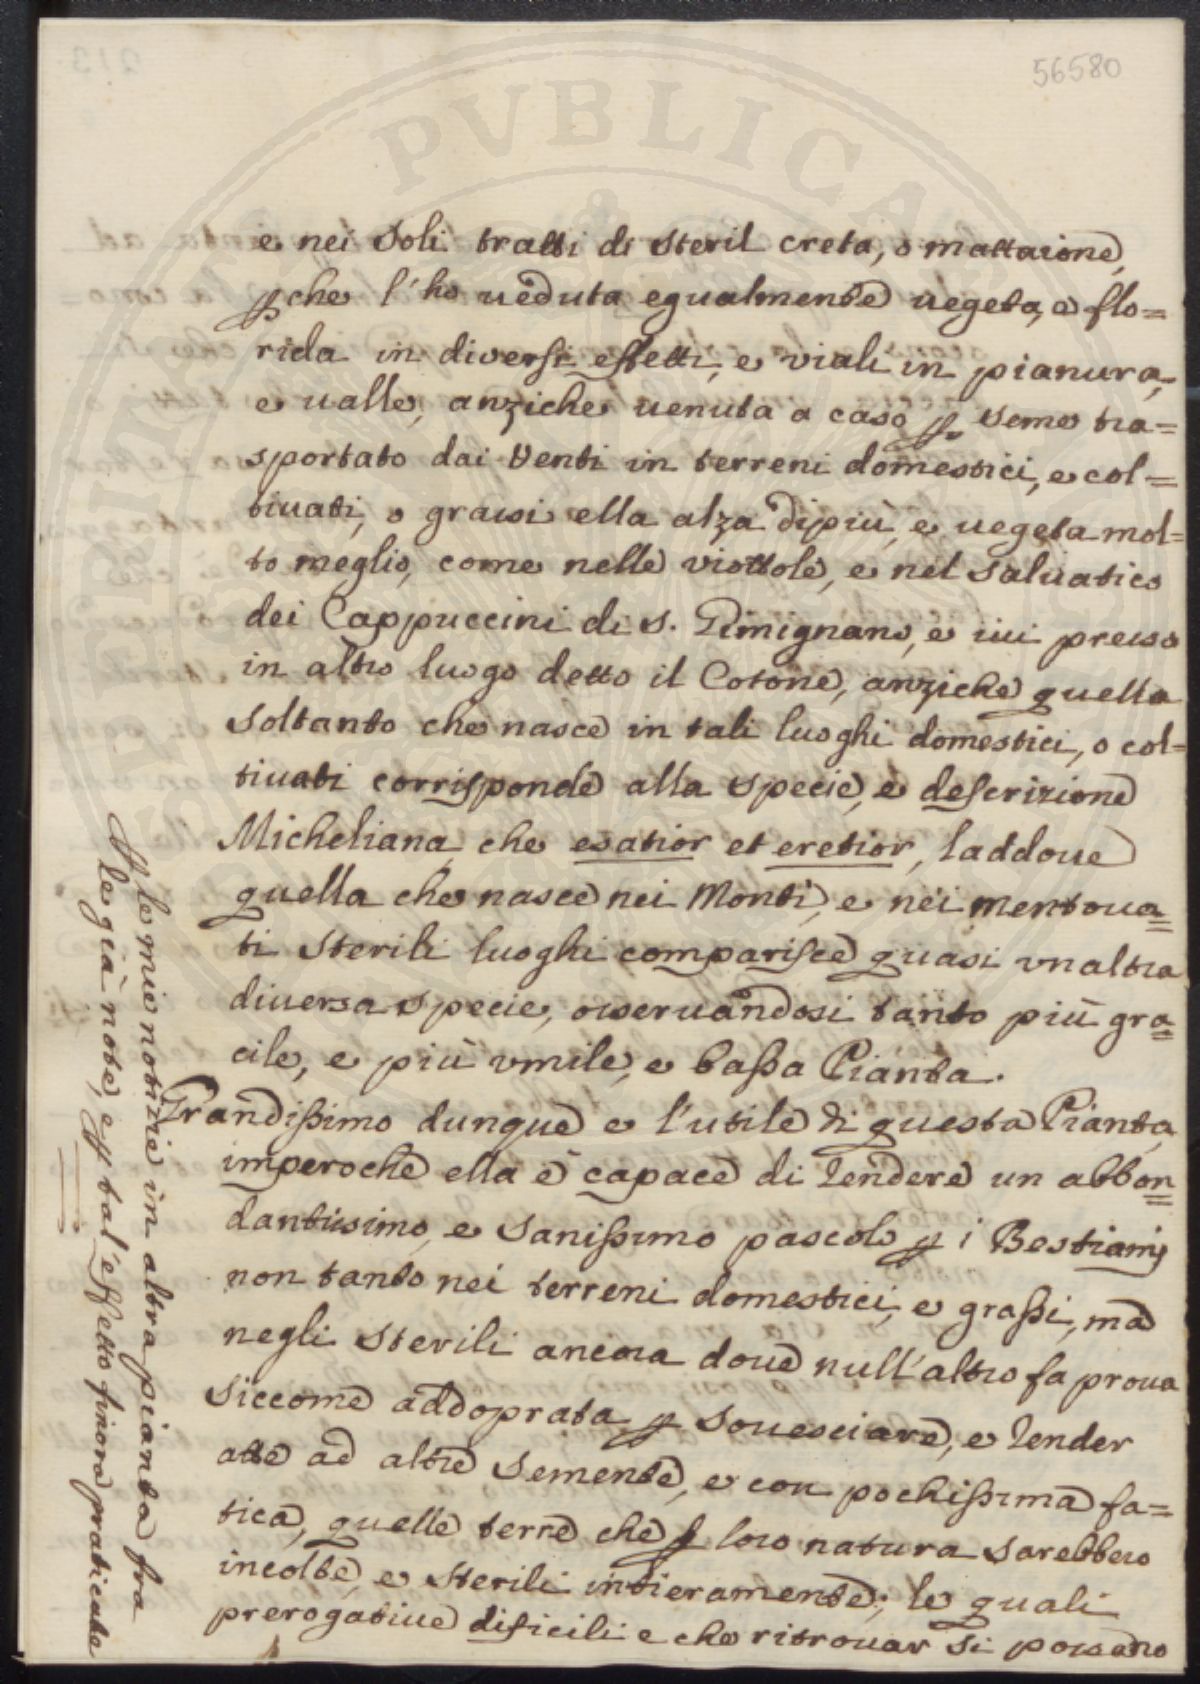 56580
e nei Soli tratti di steril creta, o mattaione,
pche l'ho ueduta egualmente uegeta, e flo=
rida in diversi effetti, e viali in pianura,
e ualle, anziche uenuta a caso p. seme tra=
sportato dai Venti in terreni domestici, e col=
tiuati, o grassi ella alza dipiù, e uegeta mol=
to meglio, come nelle viottole, e nel saluatico
dei Cappuccini di S. Gimignano, e iui presso
in altro luogo detto il Cotone, anziche quella
soltanto che nasce in tali luoghi domestici, o col=
tiuati corrisponde alla specie, e descrizione
Micheliana che esatior et eretior, laddoue
quella che nasce nei Monti, e nei mentoua=
ti sterili luoghi comparisce quasi vnaltra
diuersa specie, osseruandosi tanto più gra=
cile, e più vmile, e bassa Pianta.
Grandissimo dunque e l'utile di questa Pianta,
imperoche ella è capace di rendere un abbon=
dantissimo, e sanissimo pascolo p i Bestiami,
non tanto nei terreni domestici, e grassi, ma
negli sterili ancora doue null'altro fa proua
siccome addoprata p souesciare, e render
atte ad altre semente, e con pochissima fa=
tica, quelle terre che p loro natura sarebbero
incolte, e sterili intieramente; le quali
prerogatiue dificili e che ritrouar si possano
p le mie notizie in altra pianta fra
le già note, e p tal'effetto finora praticate